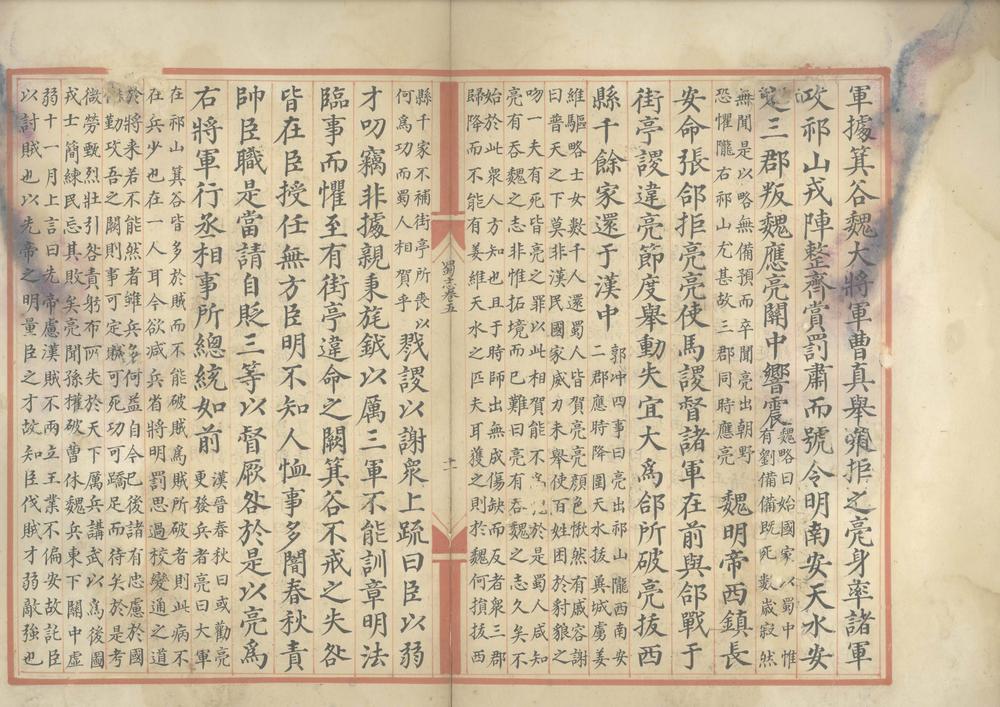 軍據箕谷魏大將軍曹真舉衆拒之亮身率諸軍
攻祁山戎陣整齊賞罰肅而號令明南安天水安
定三郡叛魏應亮關中響震
魏略曰始國家以蜀中惟
有劉備備既死數歲寂然
無聞是以略無備預而卒聞亮出朝野
恐懼隴右祁山尤甚故三郡同時應亮
魏明帝西鎮長
安命張郃拒亮亮使馬謖督諸軍在前與郃戰于
街亭謖違亮節度舉動失宜大為郃所破亮拔西
縣千餘家還于漢中
郭冲四事曰亮出祁山隴西南安
二郡應時降圍天水拔兾城虜姜
維驅略士女數千人還蜀人皆賀亮亮顏色愀然有戚容謝
曰普天之下莫非漢民國家威力未舉使百姓困於豺狼之
吻一夫有死皆亮之罪以此相賀能不於是蜀人咸知
亮有吞魏之志非惟拓境而已難曰亮有吞魏之志久矣不
始於此衆人方知也且于時師出無成傷缺而反者衆三郡
歸降而不能有姜維天水之匹夫耳獲之則於魏何損拔西
蜀志卷五
十一
縣千家不補街亭所喪以
何為功而蜀人相賀乎
戮謖以謝衆上疏曰臣以弱
才叨竊非據親秉旄鉞以厲三軍不能訓章明法
臨事而懼至有街亭違命之闕箕谷不戒之失咎
皆在臣授任無方臣明不知人恤事多闇春秋責
帥臣職是當請自貶三等以督厥咎於是以亮為
右將軍行丞相事所總統如前
漢晉春秋曰或勸亮
更發兵者亮曰大軍
在祁山箕谷皆多於賊而不能破賊為賊所破者則此病不
在兵少也在一人耳今欲減兵省將明罰思過校變通之道
於將来若不能然者雖兵多何益自今已後諸有忠慮於國
勤攻吾之闕則事可定賊可死功可蹻足而待矣於是考
微勞甄烈壯引咎責躬布所失於天下厲兵講武以為後圖
戎士簡練民忘其敗矣亮聞孫權破曹休魏兵東下關中虛
弱十一月上言曰先帝慮漢賊不兩立王業不偏安故託臣
以討賊也以先帝之明量臣之才故知臣伐賊才弱敵強也